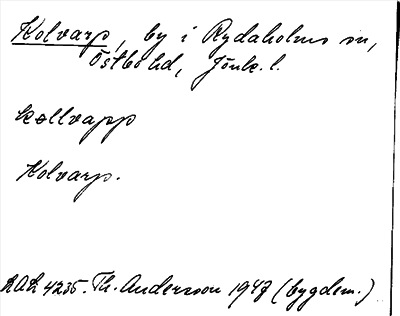 Kolvarp, by i Rydaholms sn,
Östbo hd, Jönk. l.
kollvapp
Kolvarp.
AAL 4235. Th. Andersson 1947 (bygdem.)